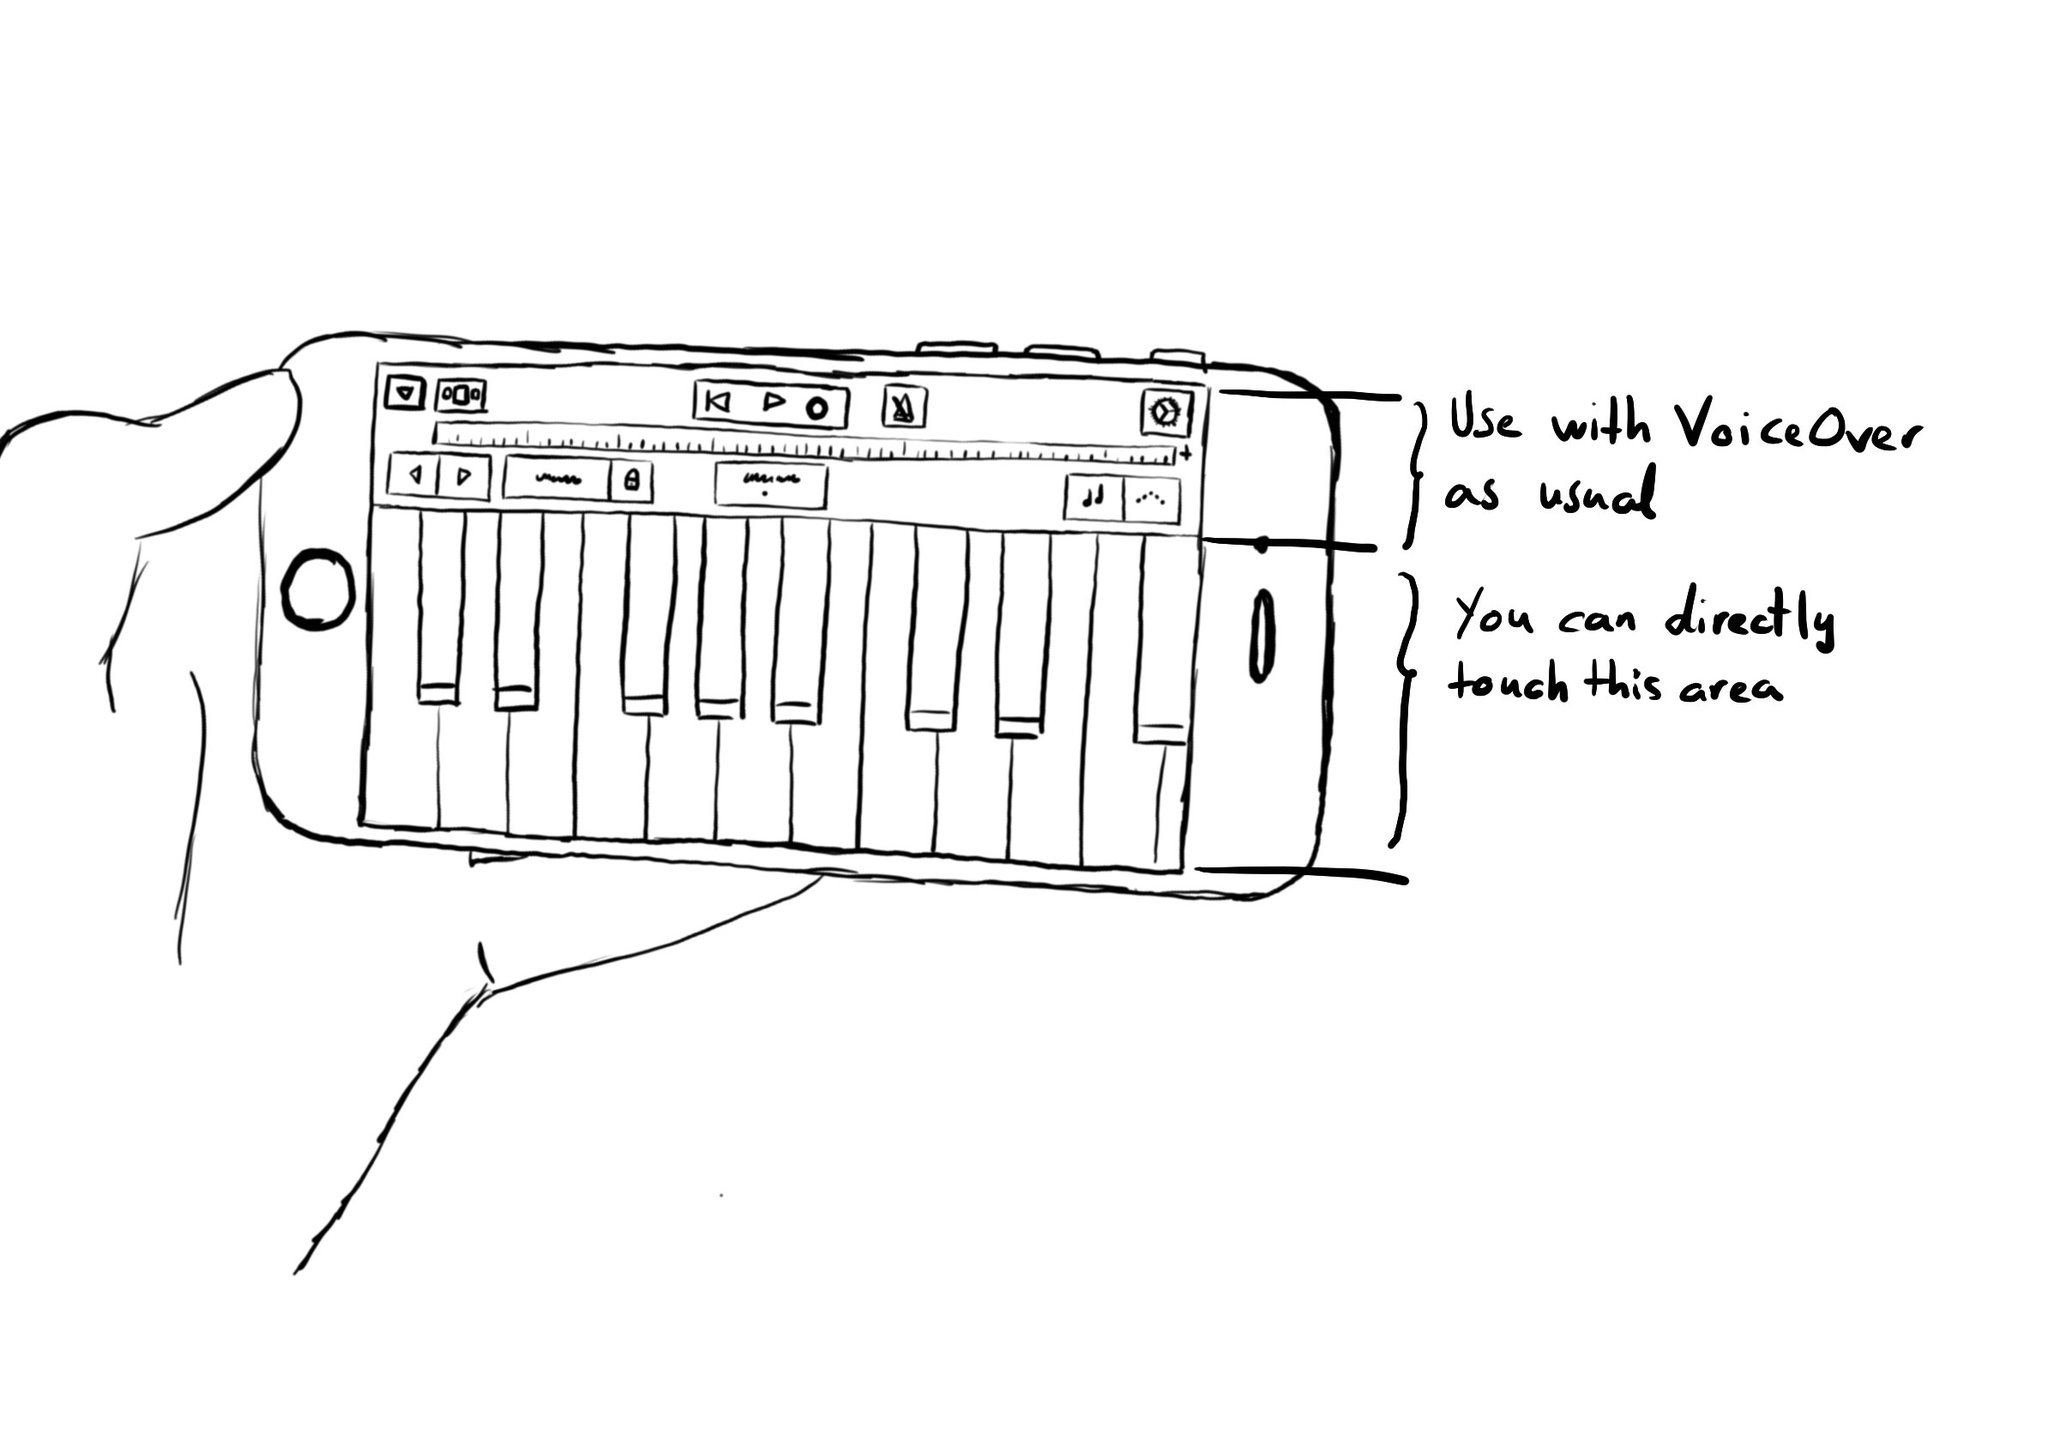 Use with VoiceOver
as usual
You can directly
touch this area